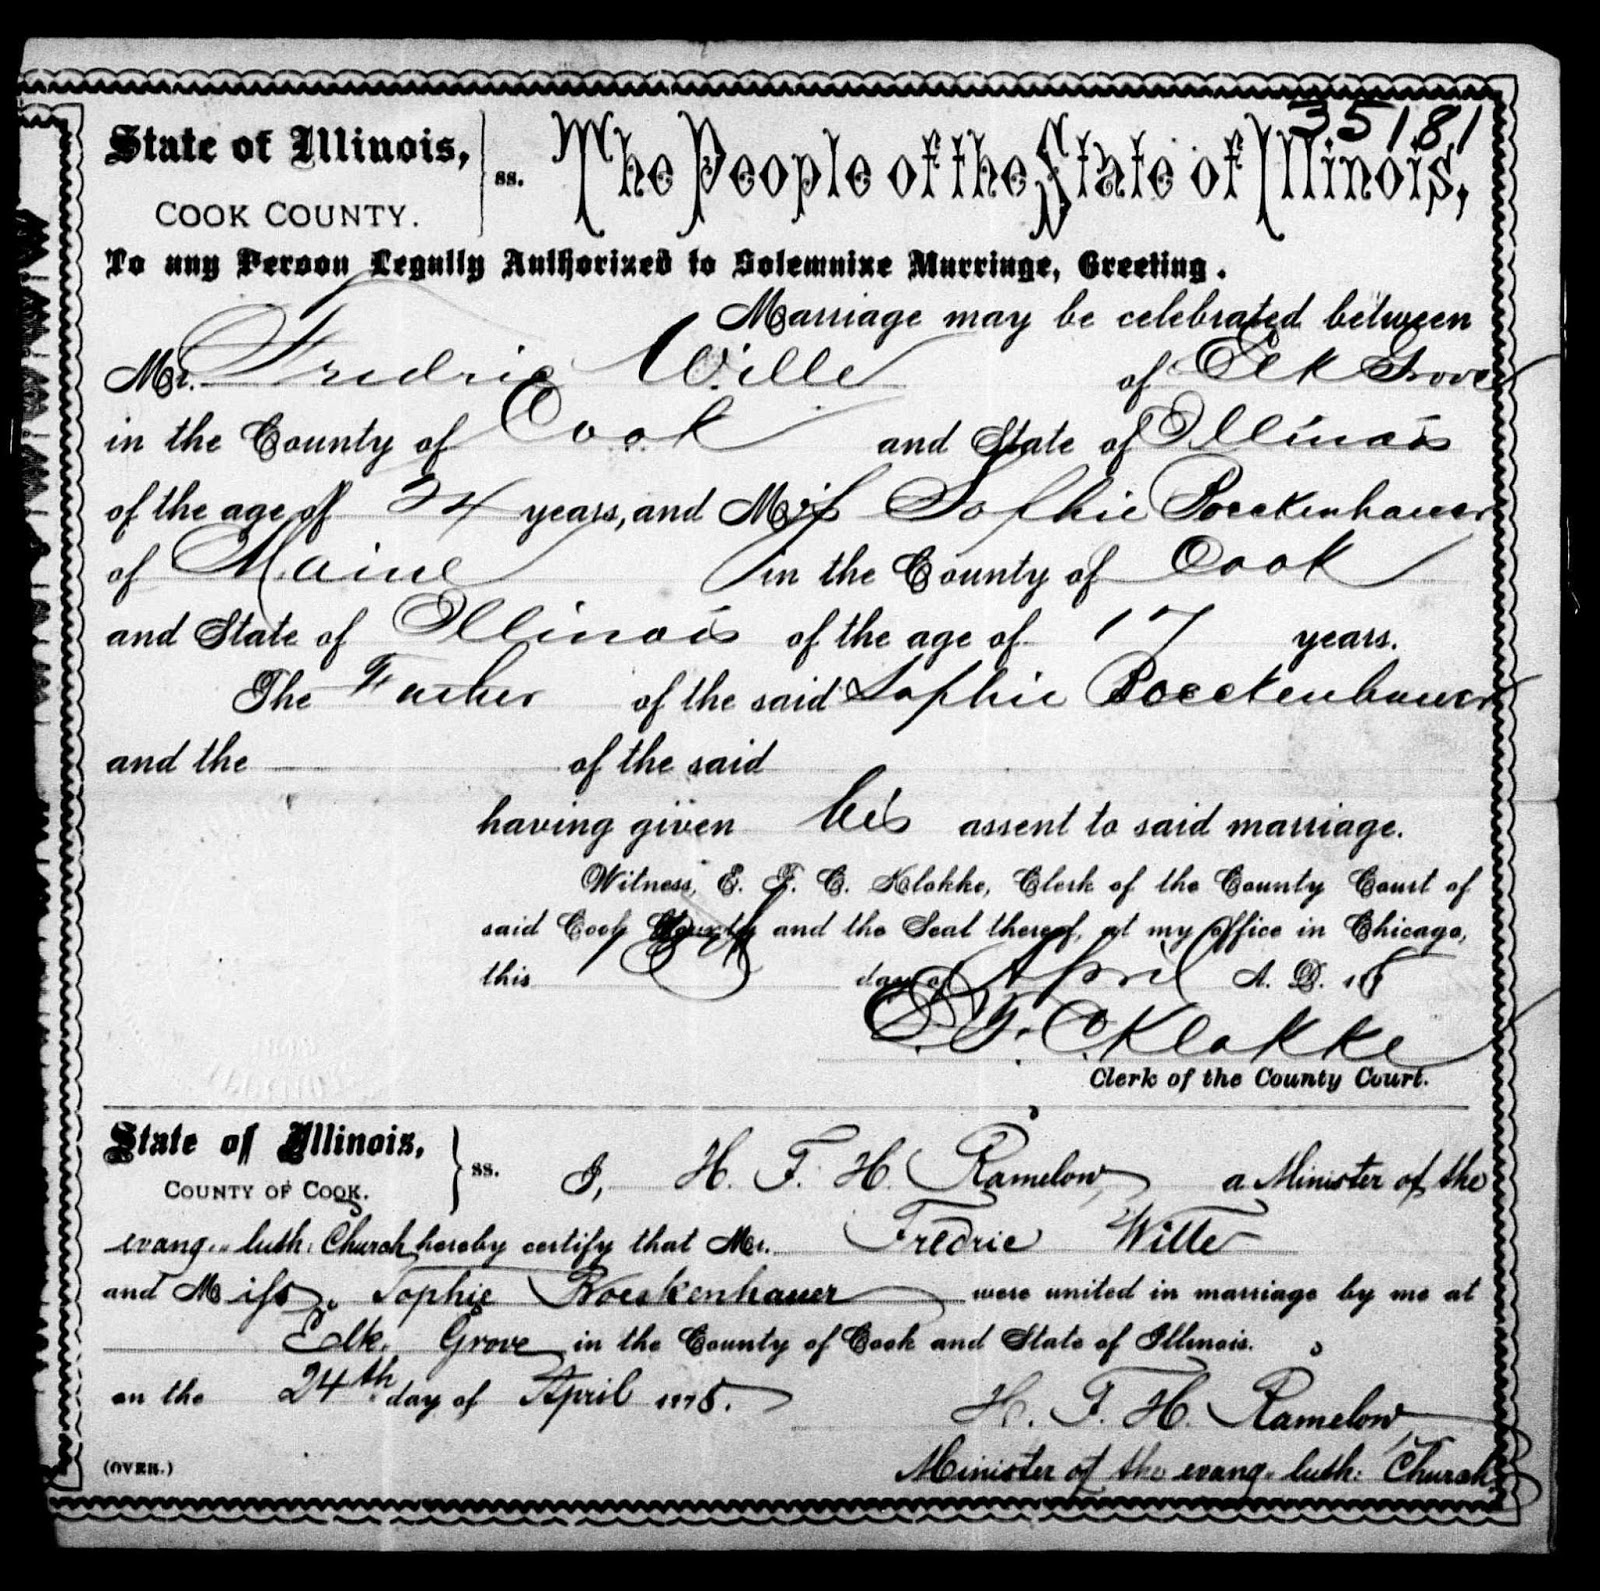 35181
State of Illinois, } ss. The People of the State of Illinois,
COOK COUNTY.
To any Person Legally Authorized to Solemnize Marriage, Greeting.
Marriage may be celebrated between
Mr. Fredric Wille of Elk Grove
in the County of Cook and State of Illinois
of the age of 24 years, and Miss Sophie Boeckenhauer
of Maine in the County of Cook
and State of Illinois of the age of 17 years.
The Father of the said Sophie Boeckenhauer
and the of the said
having given his assent to said marriage.
Witness, E. F. C. Klokke, Clerk of the County Court of
said Cook County and the Seal thereof, at my office in Chicago,
this day of April A. D. 187
E. F. C. Klokke
Clerk of the County Court.
State of Illinois, } ss. I, H. F. H. Ramelow, a Minister of the
COUNTY OF COOK.
evang. luth. Church hereby certify that Mr. Fredric Wille
and Miss Sophie Boeckenhauer were united in marriage by me at
Elk Grove in the County of Cook and State of Illinois.
on the 24th day of April 1878.
H. F. H. Ramelow
Minister of the evang. luth. Church.
(OVER.)